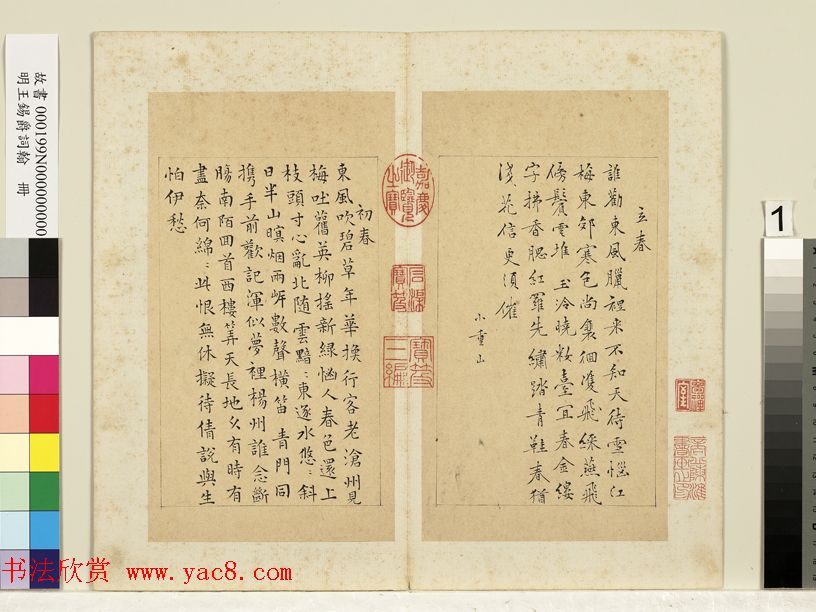 立春
誰勸東風臘裡來不知天待雪惱江
梅東郊寒色尚裵徊雙飛綵燕飛
傍鬢雲堆 玉冷曉粧臺宜春金縷
字拂香腮紅羅先繡踏青鞋春猶
淺花信更須催
小重山
初春
東風吹碧草年華換行客老滄州見
梅吐舊英柳搖新綠惱人春色還上
枝頭寸心亂北隨雲黯:東逐水悠:斜
日半山暝烟兩岸數聲橫笛 青門同
携手前歡記渾似夢裡楊州誰念斷
腸南陌回首西樓筭天長地久有時有
盡奈何綿:此恨無休擬待倩說與生
怕伊愁
嘉慶御覽之寶
石渠寶笈
寶笈三編
故書 000199N000000000
明王錫爵詞翰 冊
1
书法欣赏 www.yac8.com